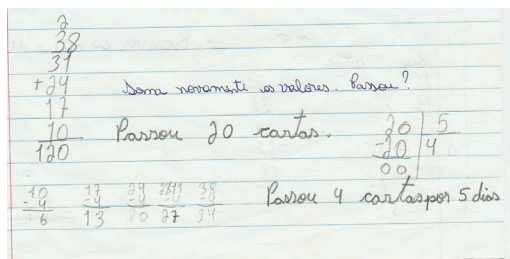 2
38
31
+ 24
17
10
120
Soma novamente os valores. Passou?
Passou 20 cartas.
20 | 5
-20 4
00
10 17 24 31 38
-4 -4 -4 -4 -4
6 13 20 27 34
Passou 4 cartas por 5 dias